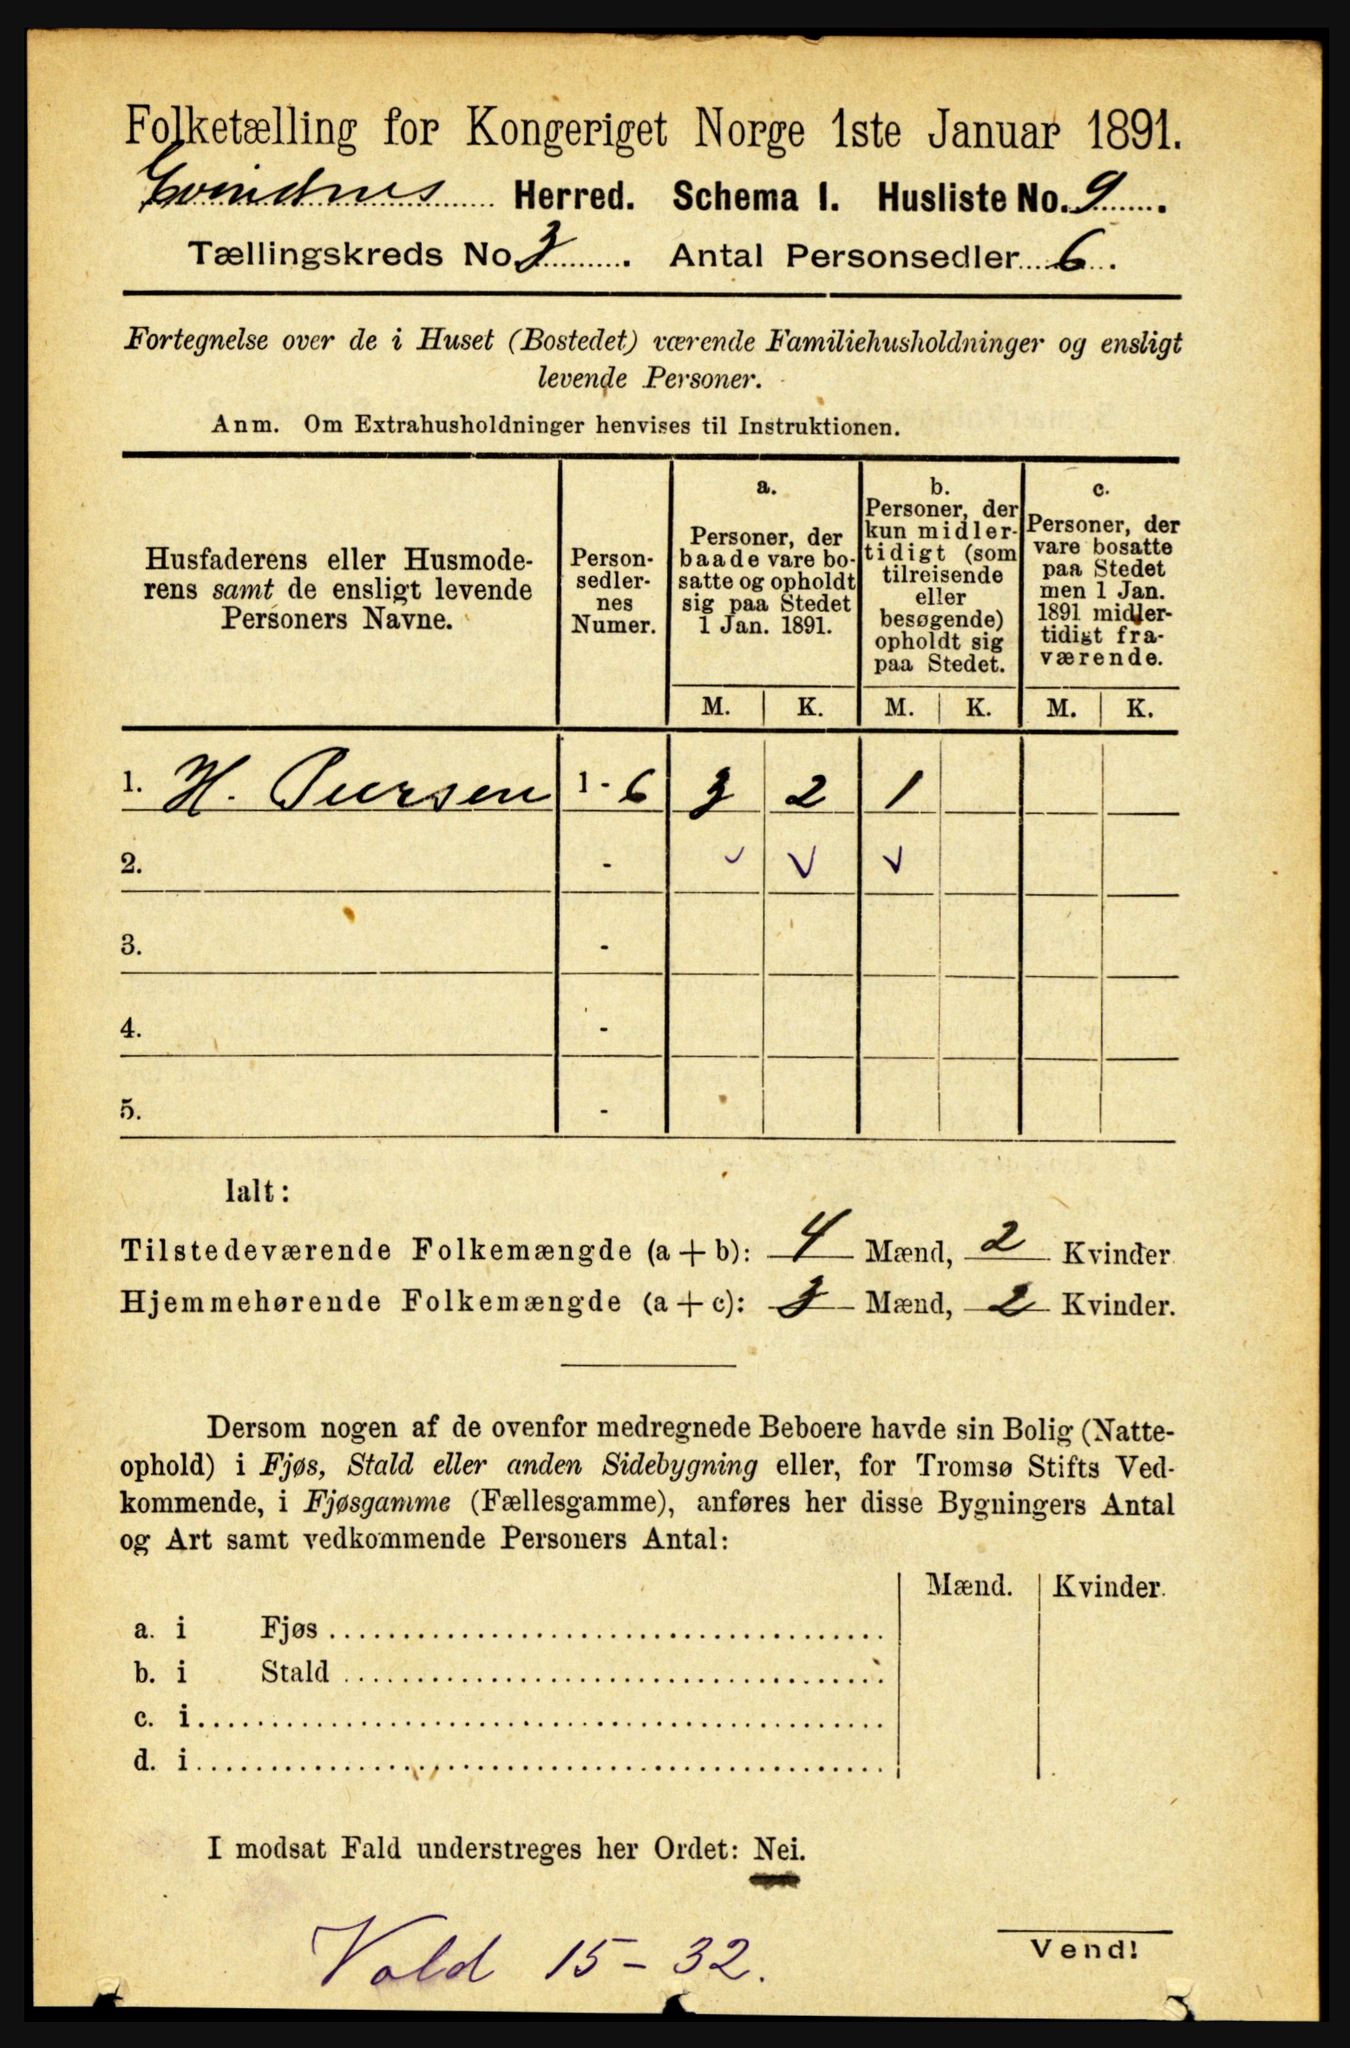 Folketælling for Kongeriget Norge 1ste Januar 1891.
Evindnes Herred. Schema I. Husliste No. 9.
Tællingskreds No. 3. Antal Personsedler 6.
Fortegnelse over de i Huset (Bostedet) værende Familiehusholdninger og ensligt
levende Personer.
Anm. Om Extrahusholdninger henvises til Instruktionen.
Husfaderens eller Husmode-
rens samt de ensligt levende
Personers Navne.
Person-
sedler-
nes
Numer.
a.
Personer, der
baade vare bo-
satte og opholdt
sig paa Stedet
1 Jan. 1891.
b.
Personer, der
kun midler-
tidigt (som
tilreisende
eller
besøgende)
opholdt sig
paa Stedet.
c.
Personer, der
vare bosatte
paa Stedet
men 1 Jan.
1891 midler-
tidigt fra-
værende.
M. K. M. K. M. K.
1. H. Peersen 1 - 6 3 2 1
2. - ✓ ✓ ✓
3. -
4. -
5. -
Ialt:
Tilstedeværende Folkemængde (a + b): 4 Mænd, 2 Kvinder
Hjemmehørende Folkemængde (a + c): 3 Mænd, 2 Kvinder.
Dersom nogen af de ovenfor medregnede Beboere havde sin Bolig (Natte-
ophold) i Fjøs, Stald eller anden Sidebygning eller, for Tromsø Stifts Ved-
kommende, i Fjøsgamme (Fællesgamme), anføres her disse Bygningers Antal
og Art samt vedkommende Personers Antal:
Mænd. Kvinder.
a. i Fjøs
b. i Stald
c. i
d. i
I modsat Fald understreges her Ordet: Nei.
Vold 15 - 32.
Vend!